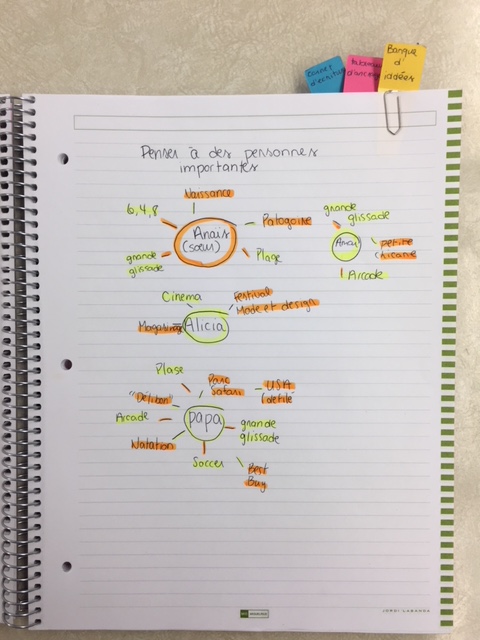 Banque
d'
idées
Carnet
d'écriture
Penser à des personnes
importantes
Naissance
6, 4, 8
Anaïs
(sœur)
Patagoire
grande
glissade
Plage
grande
glissade
petite
chicane
Arcade
Cinema
Festival
Mode et design
Magasinage
Alicia
Plage
Parc
Safari
USA
"Délibon"
Arcade
papa
grande
glissade
Natation
Soccer
Best
Buy
JORDI LABANDA